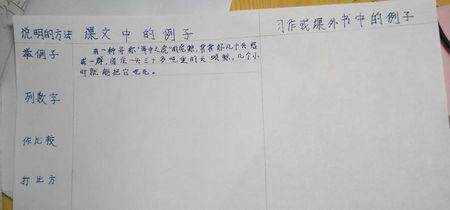 说明的方法 课文中的例子 习作或课外书中的例子
举例子
有一种号称"海中之虎"的虎鲸,常常好几十头结
成一群,围住一头三十多吨重的长须鲸,几个小
时就能把它吃光。
列数字
作比较
打比方